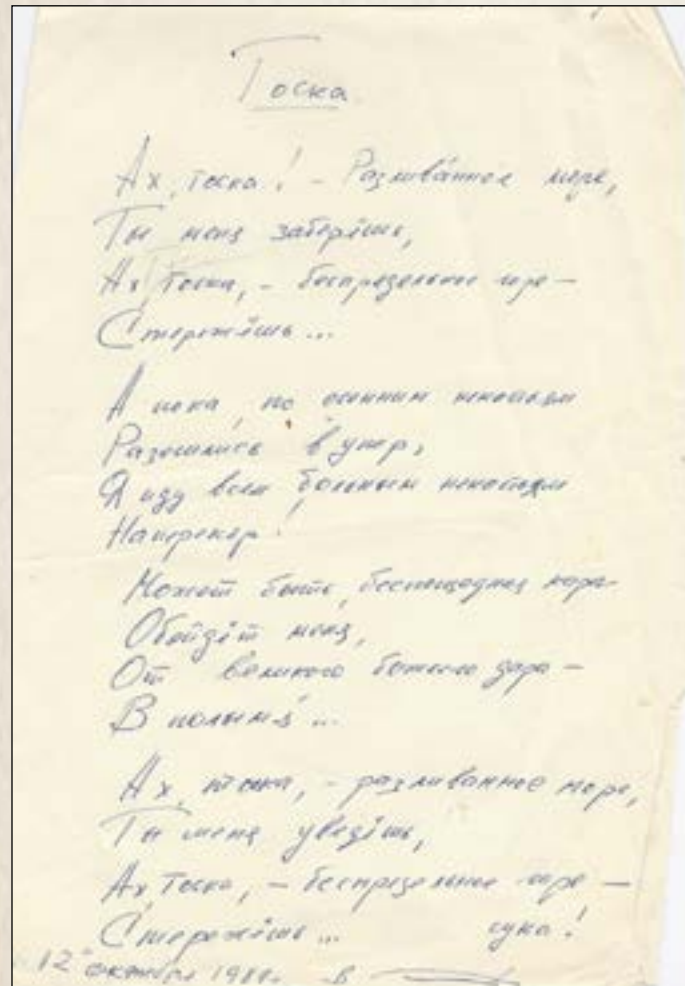 Тоска
Ах, тоска! – Разлива́нное море,
Ты меня заберёшь,
Ах, тоска, – беспредельное горе –
Стережёшь...
А пока, по осенним
Разошлись в упор,
Я иду всем больным
Наперекор!
Может быть, беспощадная кара
Обойдёт меня,
От великого божьего дара –
В полымя...
Ах, тоска, – разливанное море,
Ты меня уведёшь,
Ах, тоска, – беспредельное горе –
Стережёшь... сука!
12 октября г. В